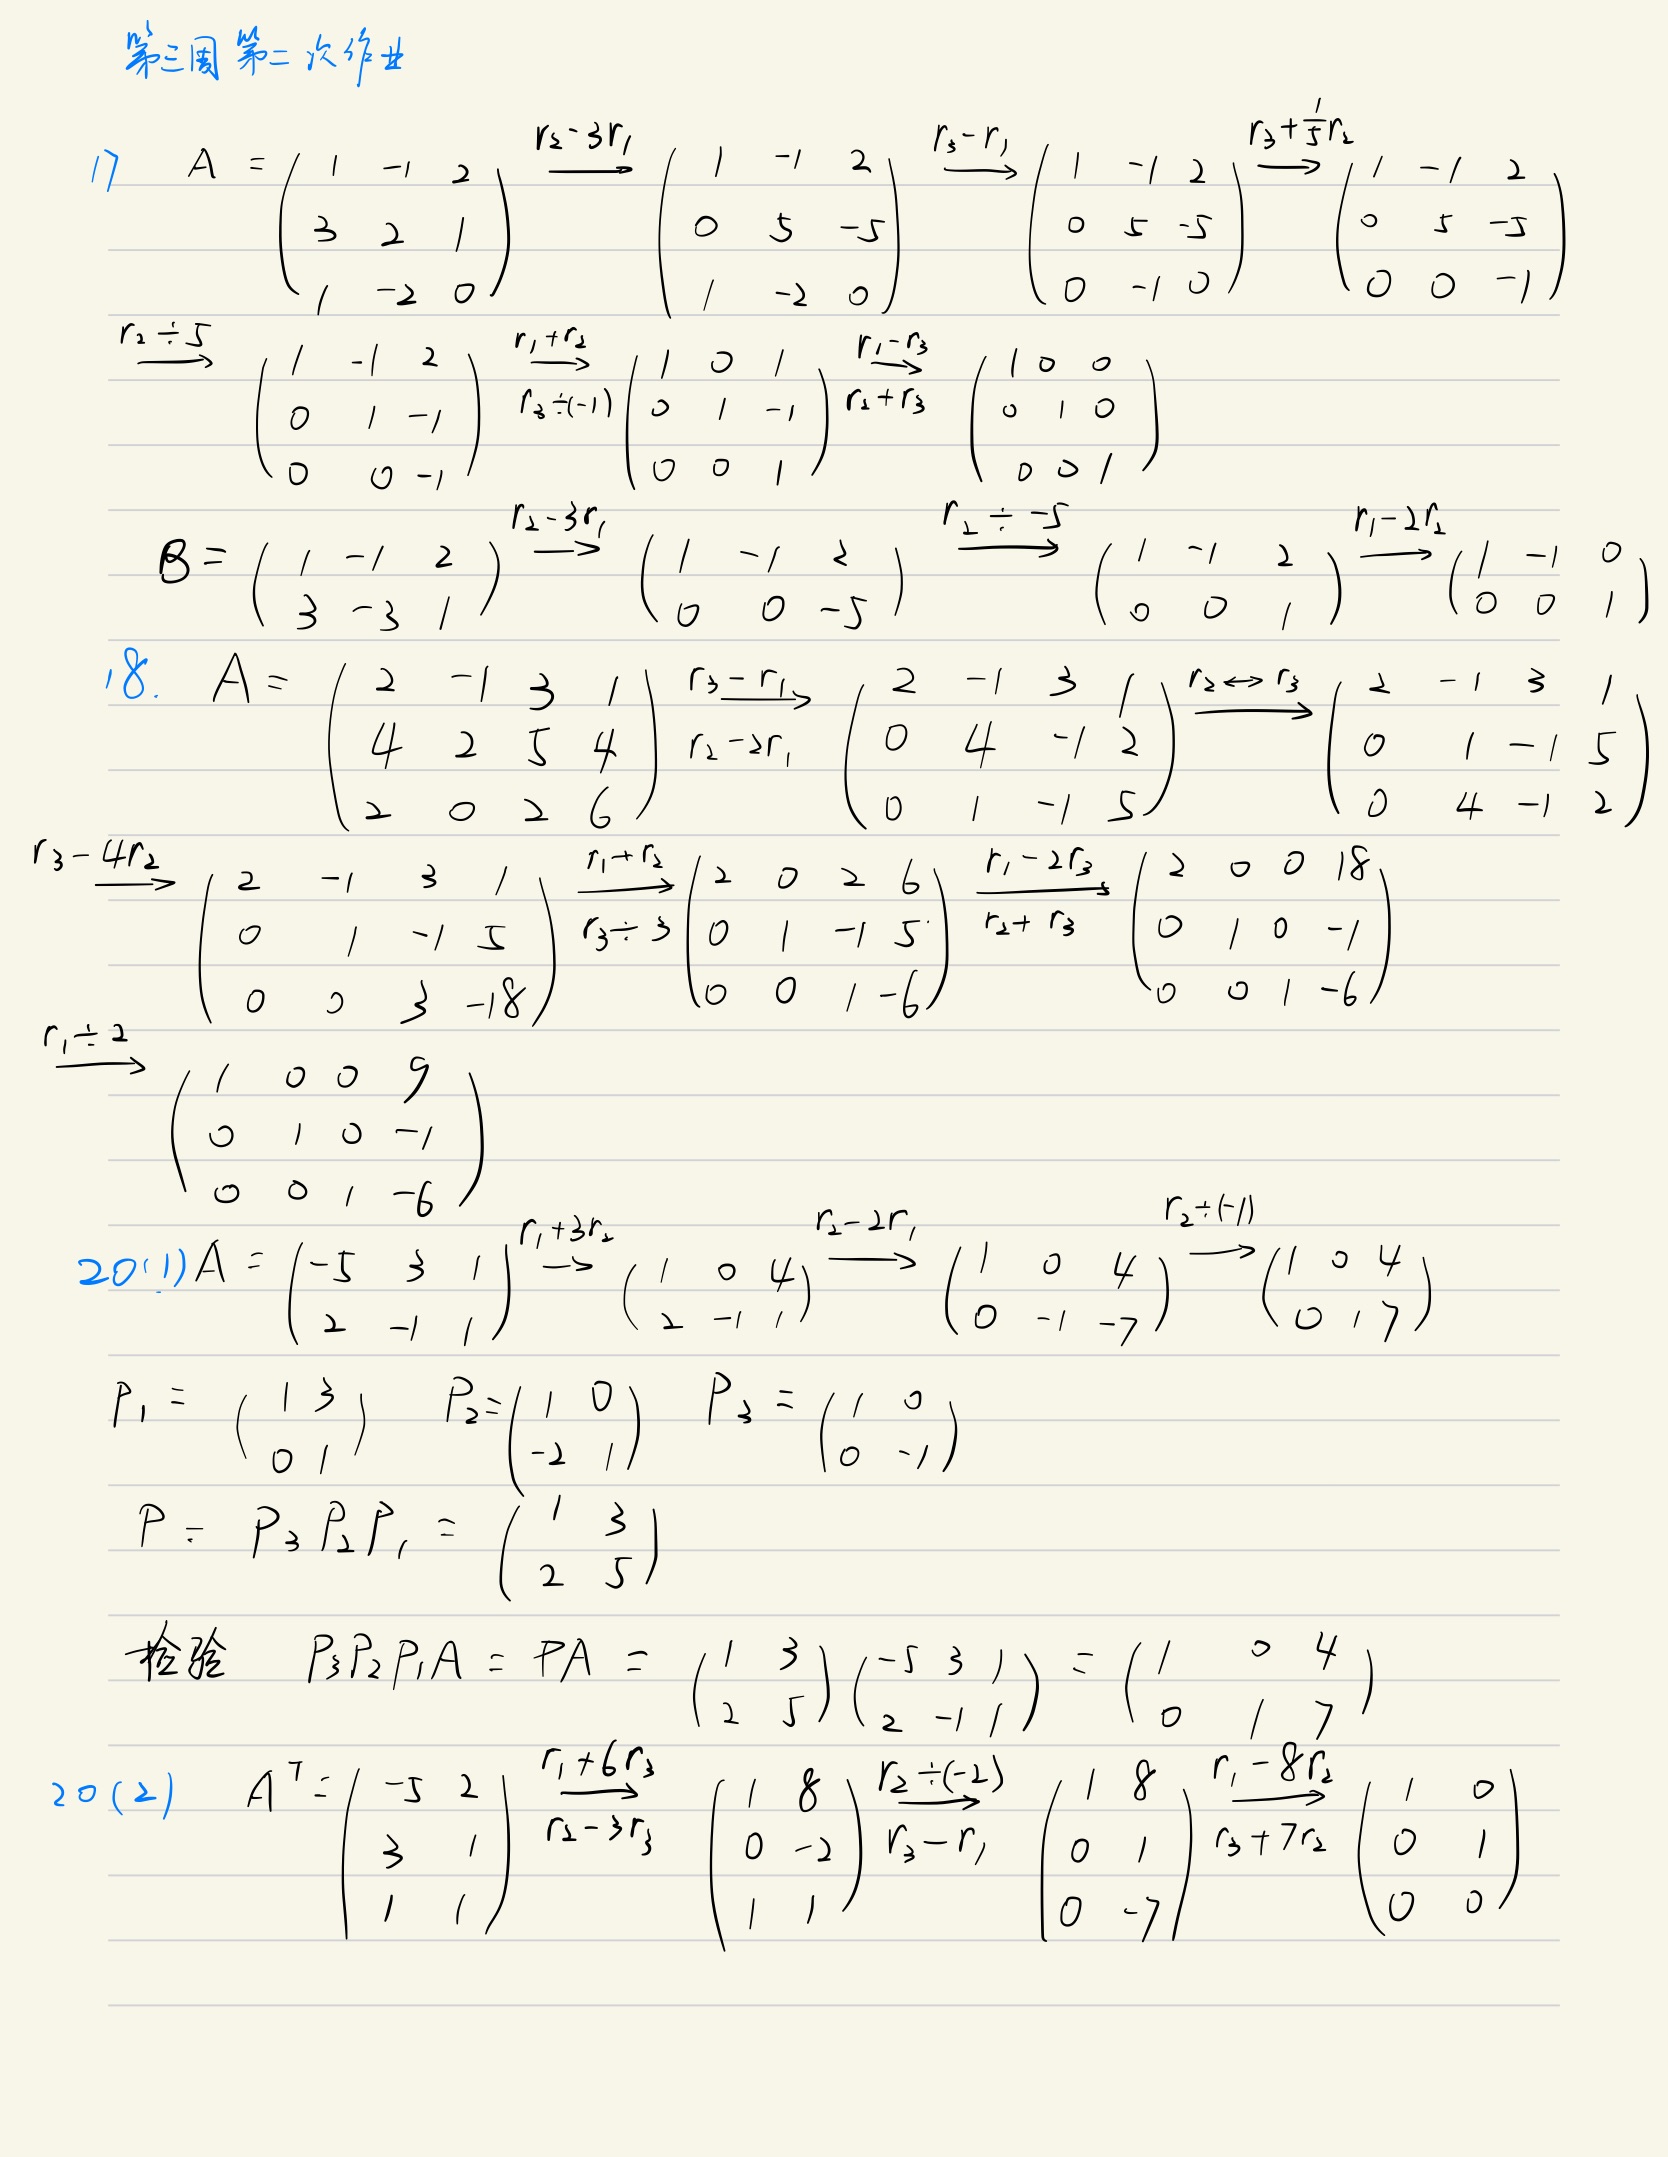 第三周第二次作业
17 A = (1 -1 2; 3 2 1; 1 -2 0) r₂-3r₁ → (1 -1 2; 0 5 -5; 1 -2 0) r₃-r₁ → (1 -1 2; 0 5 -5; 0 -1 0) r₃+1/5r₂ → (1 -1 2; 0 5 -5; 0 0 -1)
r₂÷5 → (1 -1 2; 0 1 -1; 0 0 -1) r₁+r₂ r₃÷(-1) → (1 0 1; 0 1 -1; 0 0 1) r₁-r₃ r₂+r₃ → (1 0 0; 0 1 0; 0 0 1)
B = (1 -1 2; 3 -3 1) r₂-3r₁ → (1 -1 2; 0 0 -5) r₂÷-5 → (1 -1 2; 0 0 1) r₁-2r₂ → (1 -1 0; 0 0 1)
18. A = (2 -1 3 1; 4 2 5 4; 2 0 2 6) r₃-r₁ r₂-2r₁ → (2 -1 3 1; 0 4 -1 2; 0 1 -1 5) r₂↔r₃ → (2 -1 3 1; 0 1 -1 5; 0 4 -1 2)
r₃-4r₂ → (2 -1 3 1; 0 1 -1 5; 0 0 3 -18) r₁+r₂ r₃÷3 → (2 0 2 6; 0 1 -1 5; 0 0 1 -6) r₁-2r₃ r₂+r₃ → (2 0 0 18; 0 1 0 -1; 0 0 1 -6)
r₁÷2 → (1 0 0 9; 0 1 0 -1; 0 0 1 -6)
20(1) A = (-5 3 1; 2 -1 1) r₁+3r₂ → (1 0 4; 2 -1 1) r₂-2r₁ → (1 0 4; 0 -1 -7) r₂÷(-1) → (1 0 4; 0 1 7)
P₁ = (1 3; 0 1) P₂ = (1 0; -2 1) P₃ = (1 0; 0 -1)
P = P₃P₂P₁ = (1 3; 2 5)
检验 P₃P₂P₁A = PA = (1 3; 2 5)(-5 3 1; 2 -1 1) = (1 0 4; 0 1 7)
20(2) Aᵀ = (-5 2; 3 1; 1 1) r₁+6r₃ r₂-3r₃ → (1 8; 0 -2; 1 1) r₂÷(-2) r₃-r₁ → (1 8; 0 1; 0 -7) r₁-8r₂ r₃+7r₂ → (1 0; 0 1; 0 0)